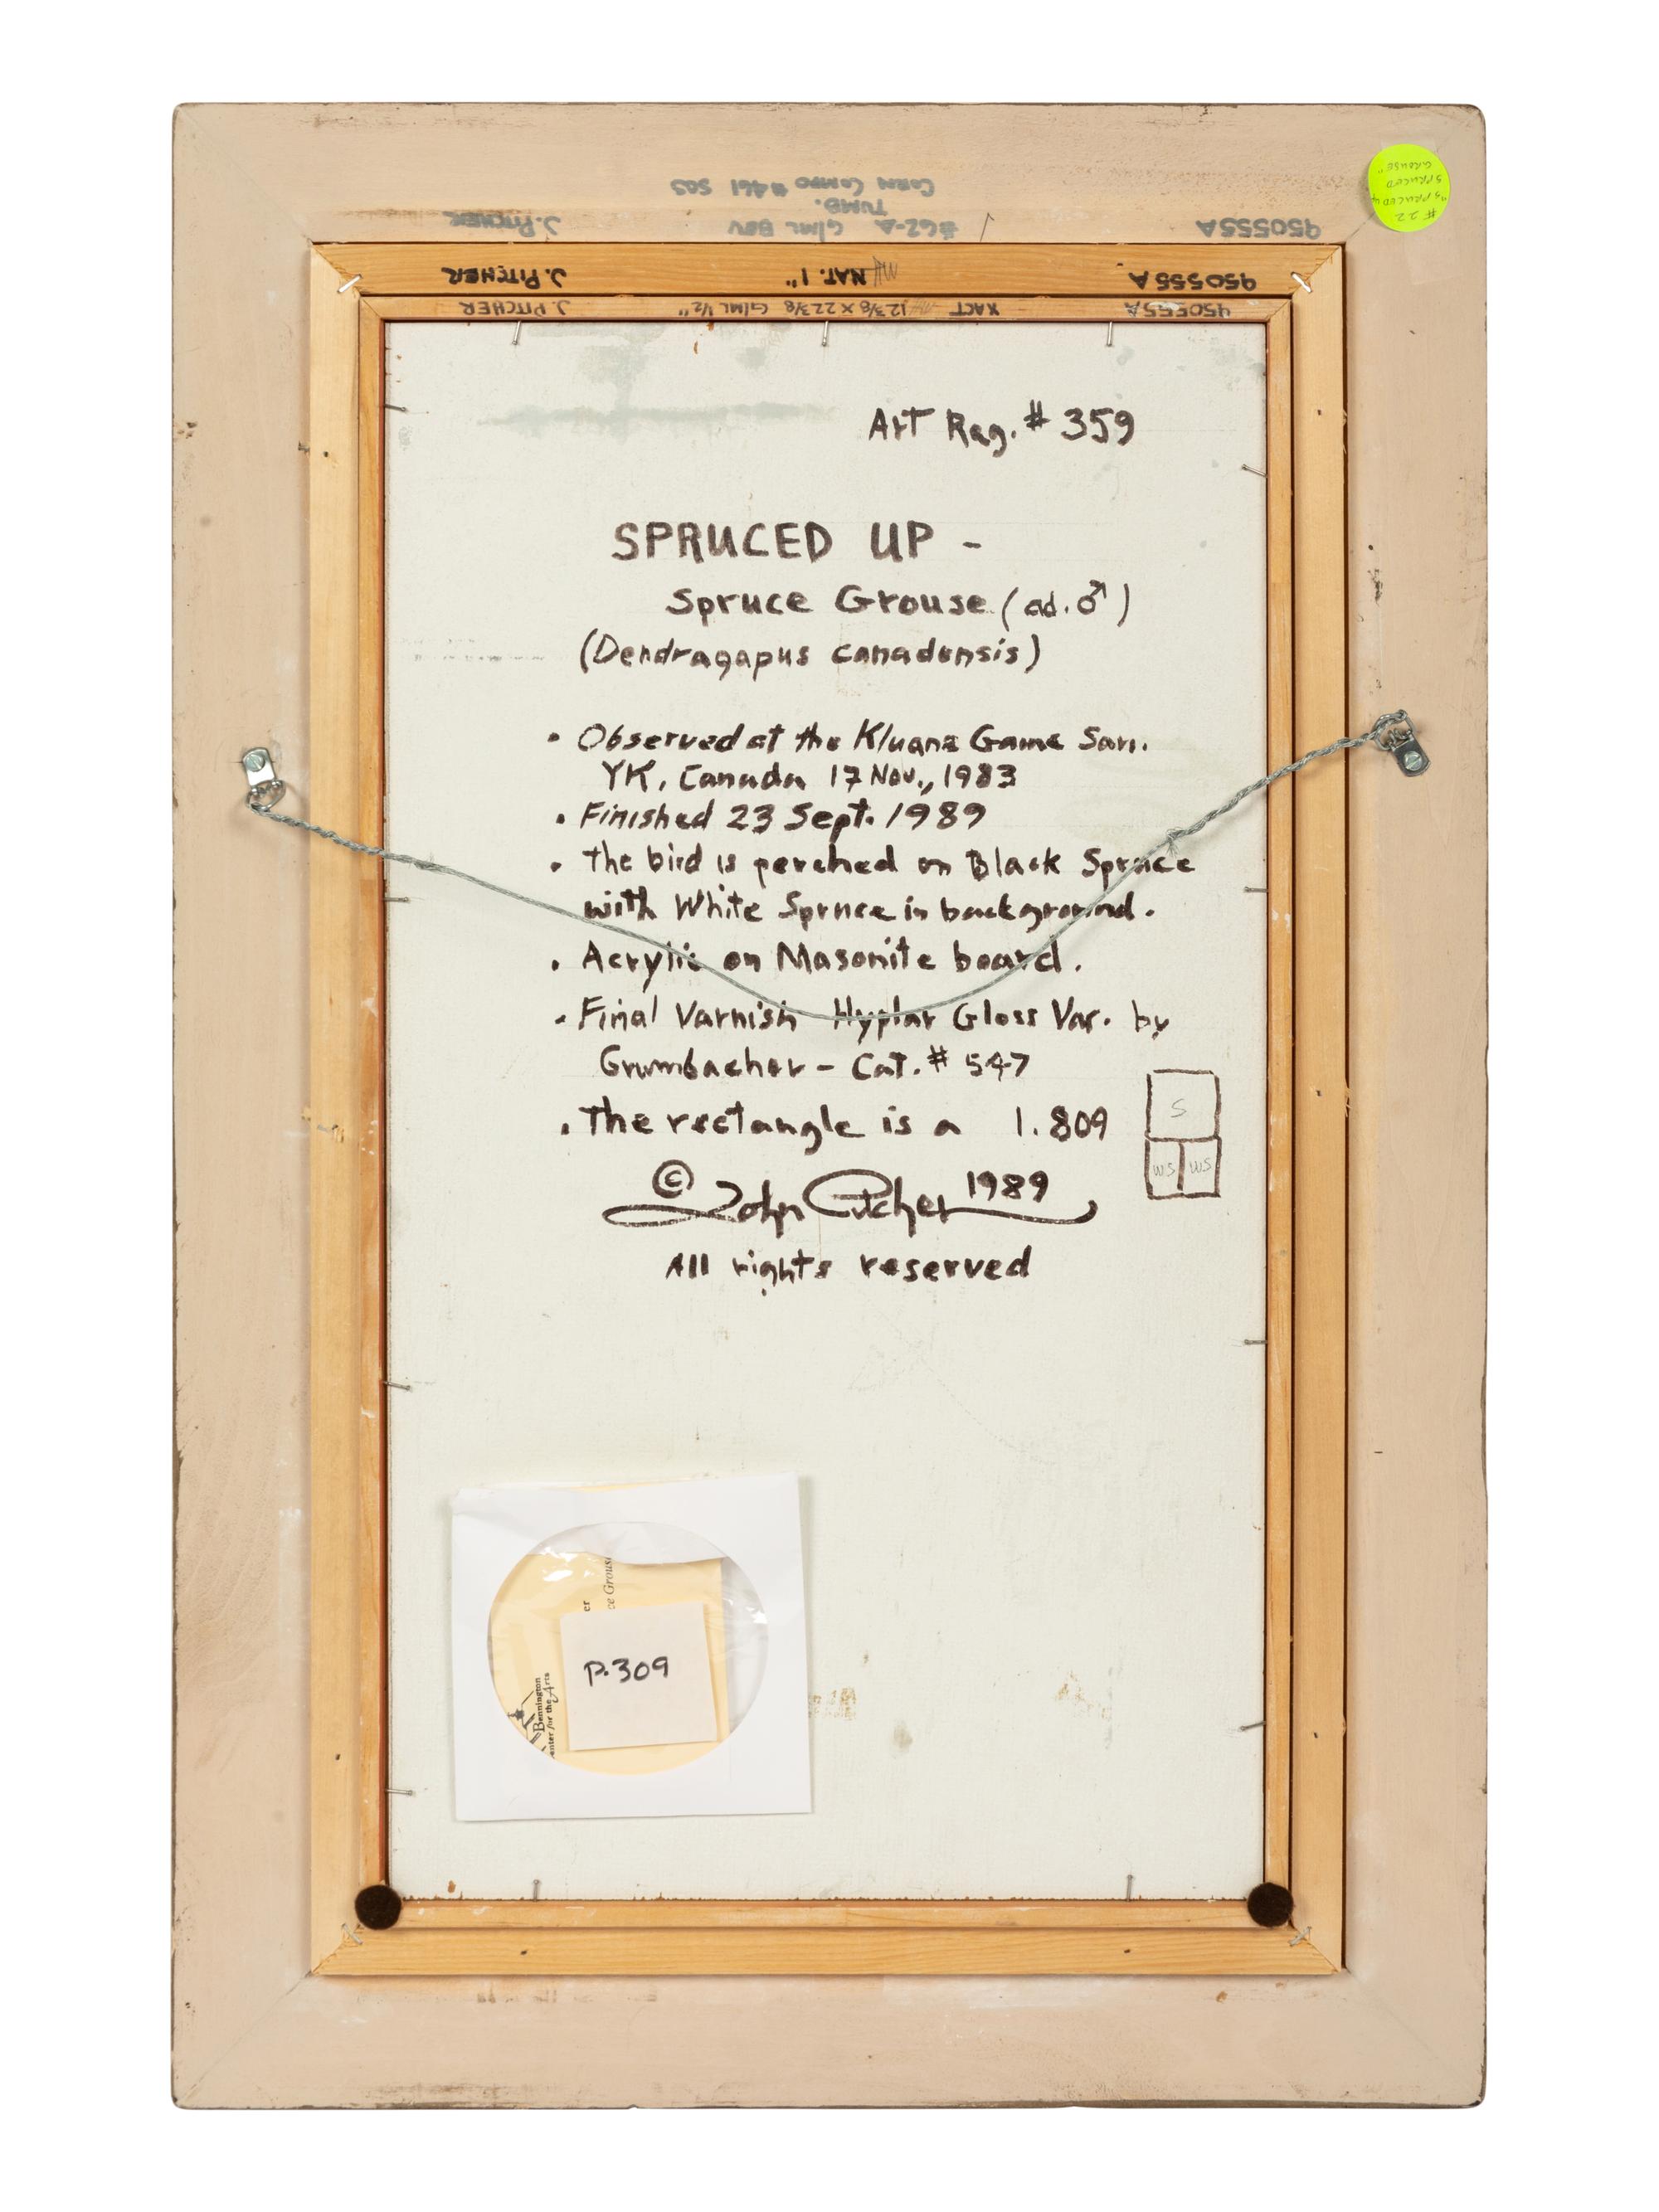 CORN COMPO #461 SQS
TUMB.
950555A
#62-A G/ML BOV
J. PITCHER
950555A
NAT. 1"
J. PITCHER
950555A
XACT 12 3/8 X 22 3/8 G/ML 1/2"
J. PITCHER
#22
"SPRUCED UP
SPRUCED
GROUSE"
Art Reg. # 359
SPRUCED UP -
Spruce Grouse (ad. ♂)
(Dendragapus canadensis)
• Observed at the Kluane Game San.
YK, Canada 17 Nov., 1983
• Finished 23 Sept. 1989
• The bird is perched on Black Spruce
with White Spruce in background.
• Acrylic on Masonite board.
• Final Varnish Hyplar Gloss Var. by
Grumbacher - Cat. # 547
• The rectangle is a 1.809
S
WS WS
© John Pitcher 1989
All rights reserved
er
ce Grouse
P. 309
Bennington
enter for the Arts